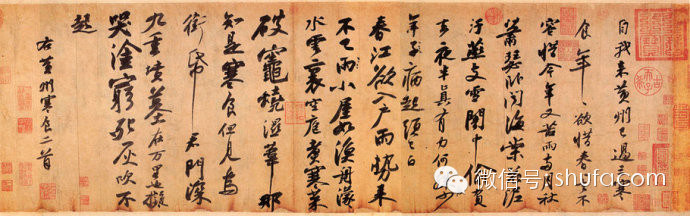 自我來黃州已過三寒
食年〻欲惜春春去不
容惜今年又苦雨兩月秋
蕭瑟卧聞海棠花泥
汙燕支雪闇中偷負
去夜半真有力何殊少
年子病起頭已白
春江欲入户雨勢來
不已雨小屋如漁舟濛〻
水雲裏空庖煮寒菜
破竈燒濕葦那
知是寒食但見烏
銜帋君門深
九重墳墓在万里也擬
哭塗窮死灰吹不
起
右黃州寒食二首
微信号: shufa.com